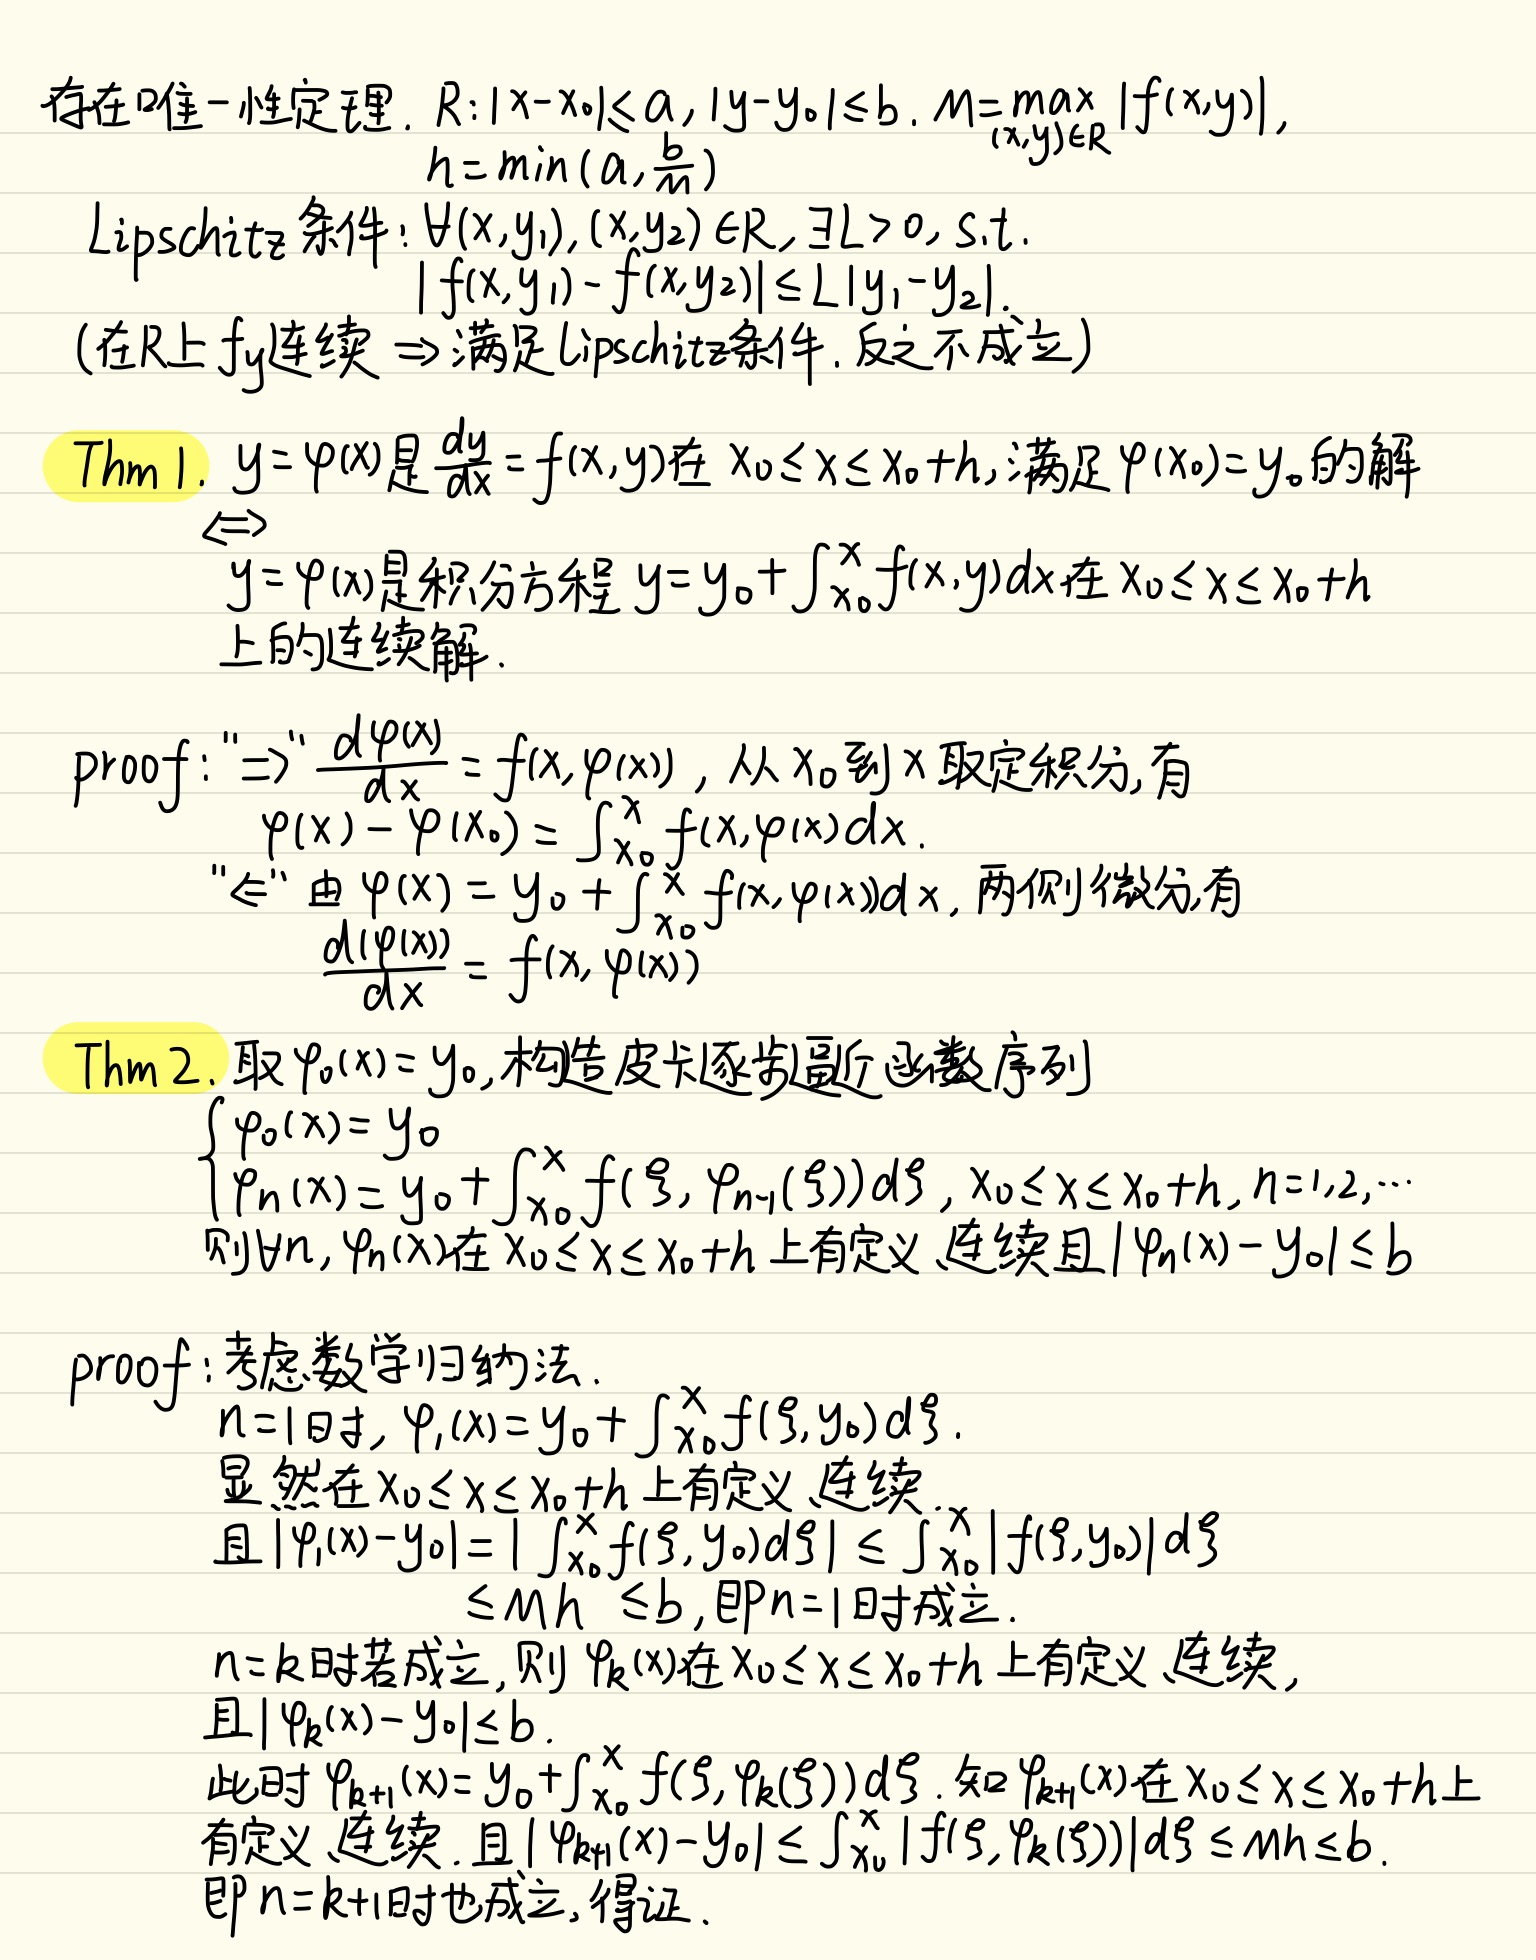 存在唯一性定理. R: |x-x₀|≤a, |y-y₀|≤b. M=max_{(x,y)∈R} |f(x,y)|,
h=min(a, b/M)
Lipschitz条件: ∀(x,y₁),(x,y₂)∈R, ∃L>0, s.t.
|f(x,y₁)-f(x,y₂)|≤L|y₁-y₂|.
(在R上f_y连续 ⇒ 满足Lipschitz条件. 反之不成立)
Thm 1. y=φ(x)是 dy/dx = f(x,y)在 x₀≤x≤x₀+h, 满足φ(x₀)=y₀的解
⇔
y=φ(x)是积分方程 y=y₀+∫_{x₀}^{x} f(x,y)dx在 x₀≤x≤x₀+h
上的连续解.
proof: "⇒" dφ(x)/dx = f(x,φ(x)), 从x₀到x取定积分,有
φ(x)-φ(x₀)=∫_{x₀}^{x} f(x,φ(x)dx.
"⇐" 由 φ(x)=y₀+∫_{x₀}^{x} f(x,φ(x))dx, 两侧微分,有
d(φ(x))/dx = f(x,φ(x))
Thm 2. 取φ₀(x)=y₀, 构造皮卡逐步逼近函数序列
{ φ₀(x)=y₀
φₙ(x)=y₀+∫_{x₀}^{x} f(ξ,φₙ₋₁(ξ))dξ, x₀≤x≤x₀+h, n=1,2,…
则∀n, φₙ(x)在 x₀≤x≤x₀+h 上有定义、连续且|φₙ(x)-y₀|≤b
proof: 考虑数学归纳法.
n=1时, φ₁(x)=y₀+∫_{x₀}^{x} f(ξ,y₀)dξ.
显然在x₀≤x≤x₀+h上有定义、连续.
且|φ₁(x)-y₀|=|∫_{x₀}^{x} f(ξ,y₀)dξ| ≤ ∫_{x₀}^{x} |f(ξ,y₀)|dξ
≤Mh ≤b, 即n=1时成立.
n=k时若成立, 则 φₖ(x)在x₀≤x≤x₀+h上有定义、连续,
且|φₖ(x)-y₀|≤b.
此时φₖ₊₁(x)=y₀+∫_{x₀}^{x} f(ξ,φₖ(ξ))dξ. 知φₖ₊₁(x)在x₀≤x≤x₀+h上
有定义、连续. 且|φₖ₊₁(x)-y₀|≤∫_{x₀}^{x} |f(ξ,φₖ(ξ))|dξ≤Mh≤b.
即n=k+1时也成立, 得证.